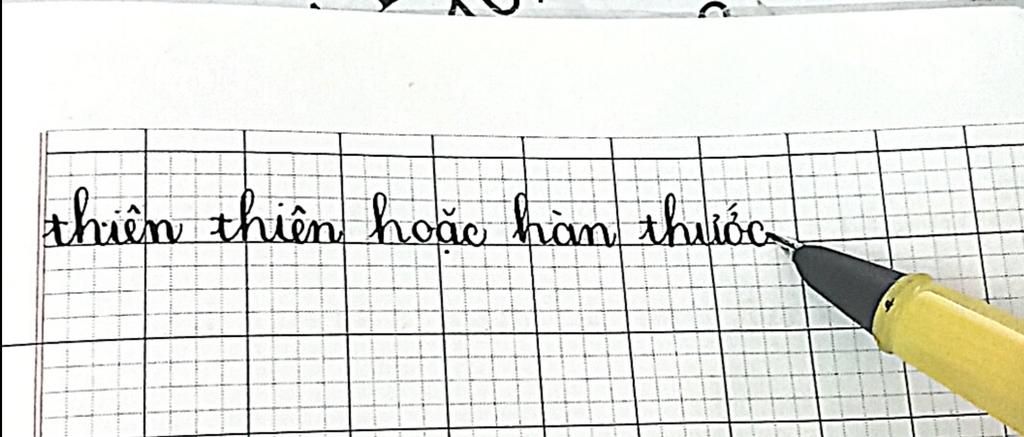 thiên thiên hoặc hàn thước